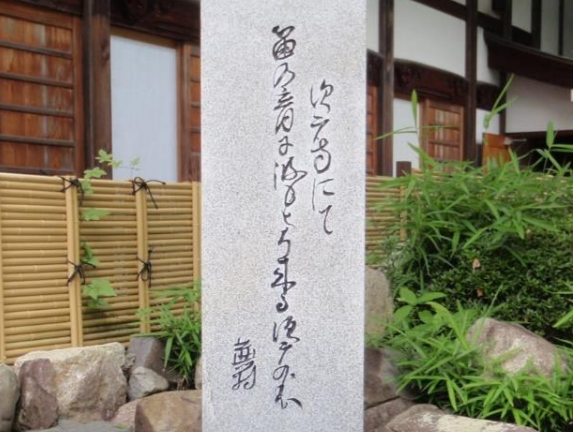 須磨寺にて
笛の音に波もより来る須磨の秋
蕪村